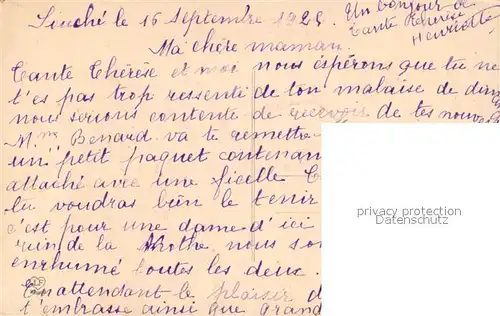 Souché le 16 Septembre 192
Un bonjour de
Tante
Henriette
Ma chère maman.
Tante Thérèse et moi nous espérons que tu ne
t'es pas trop ressentie de ton malaise de dim
nous serions contente de recevoir de tes nouv
Mme Benard va te remettre
un petit paquet contenan
attaché avec une ficelle
tu voudras bien le tenir
c'est pour une dame d'ici
de la Mothe nous so
enrhumé toutes les deux.
En attendant le plaisir d
t'embrasse ainsi que grand
privacy protection
AnsichtsKartenVersand.com